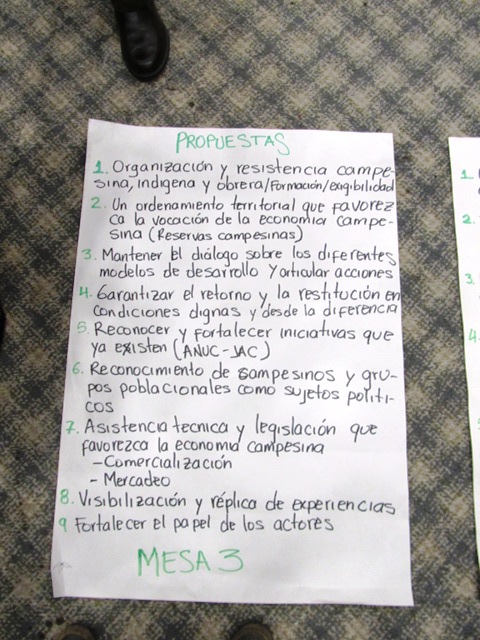 PROPUESTAS
1. Organización y resistencia campe-
sina, indigena y obrera/Formación/exigibilidad
2. Un ordenamiento territorial que favorez
ca la vocación de la economia campe-
sina (Reservas campesinas)
3. Mantener El diálogo sobre los diferentes
modelos de desarrollo y articular acciones
4. Garantizar el retorno y la restitución en
condiciones dignas y desde la diferencia
5. Reconocer y fortalecer iniciativas que
ya existen (ANUC-JAC)
6. Reconocimiento de campesinos y gru-
pos poblacionales como sujetos politi-
cos
7. Asistencia tecnica y legislación que
favorezca la economia campesina
- Comercialización
- Mercadeo
8. Visibilización y réplica de experiencias
9 Fortalecer el papel de los actores
MESA 3
1
2.
3.
4.